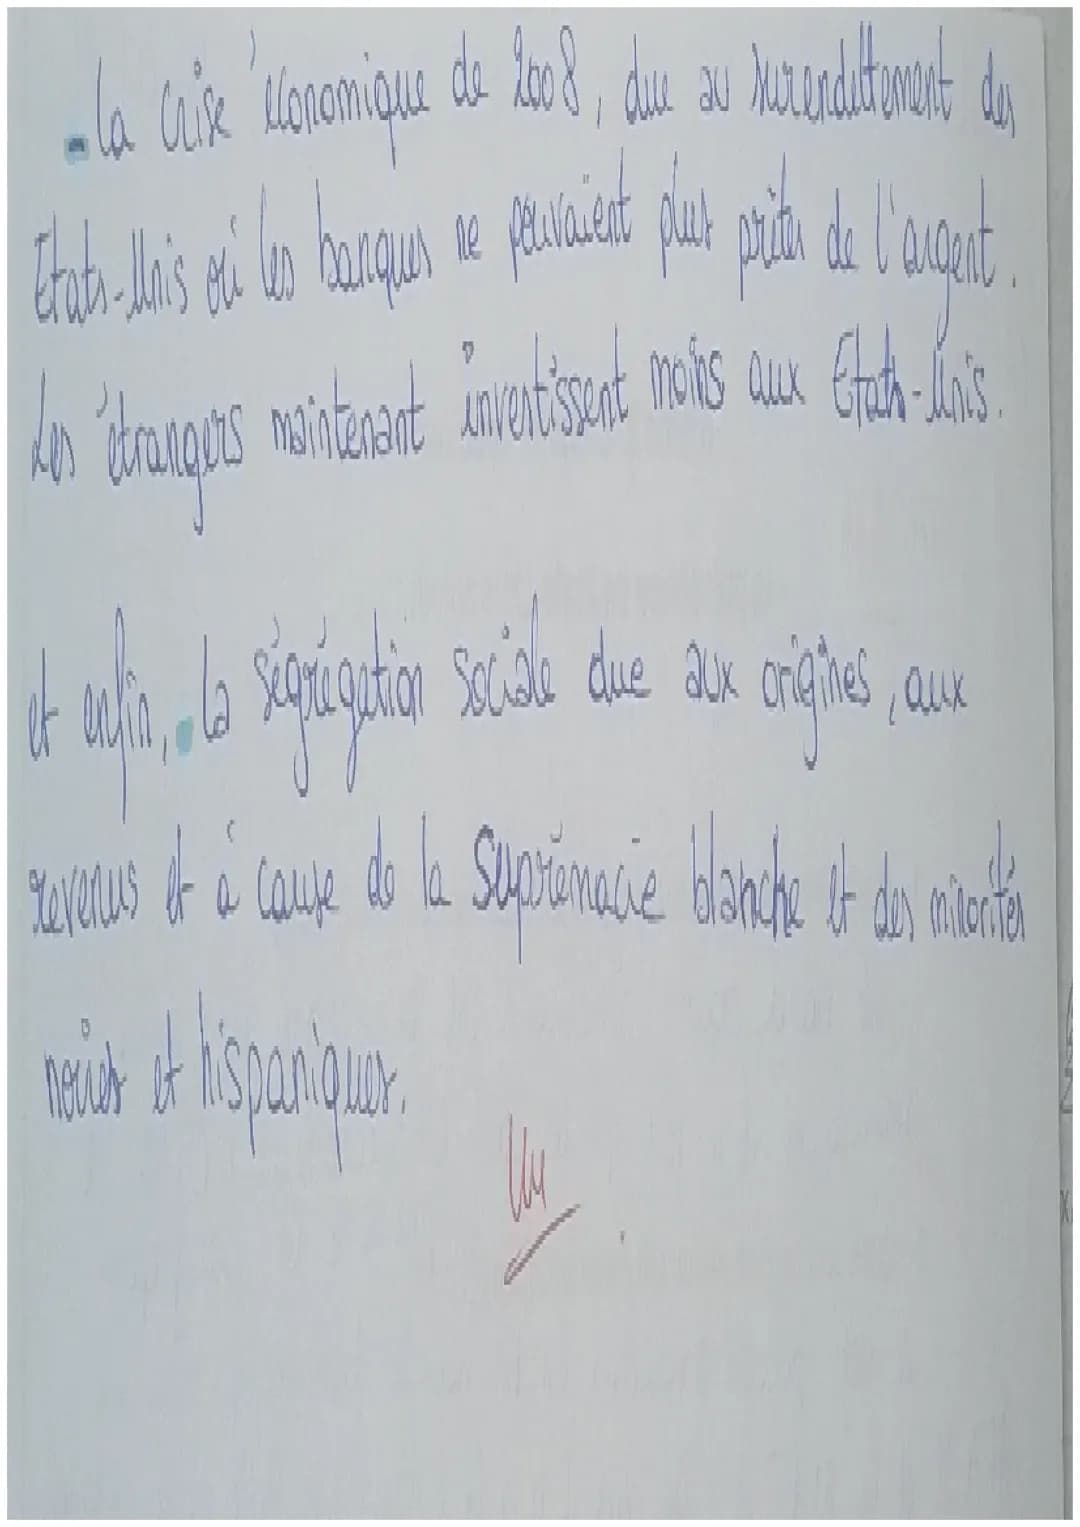 - la crise économique de 2008, due au surendettement des
Etats-Unis où les banques ne pouvaient plus prêter de l'argent.
Les étrangers maintenant investissent moins aux Etats-Unis.
et enfin, - la ségrégation sociale due aux origines, aux
revenus et à cause de la suprémacie blanche et des minorités
noires et hispaniques.
Vu